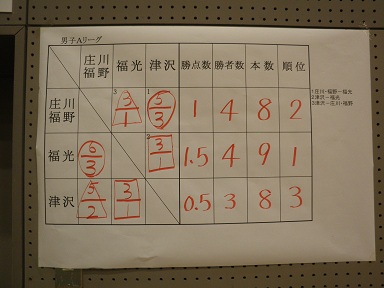 男子Aリーグ
庄川 福野 福光 津沢 勝点数 勝者数 本数 順位
庄川 福野 3 3/1 1 5/3 1 4 8 2
福光 6/3 2 3/1 1.5 4 9 1
津沢 5/2 3/1 0.5 3 8 3
1庄川・福野―福光
2津沢―福光
3津沢―庄川・福野